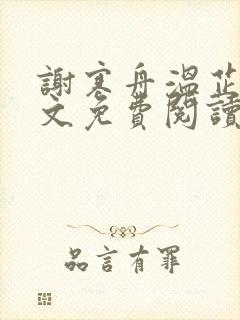 謝寒舟溫芷
文免費閱讀
品言有罪